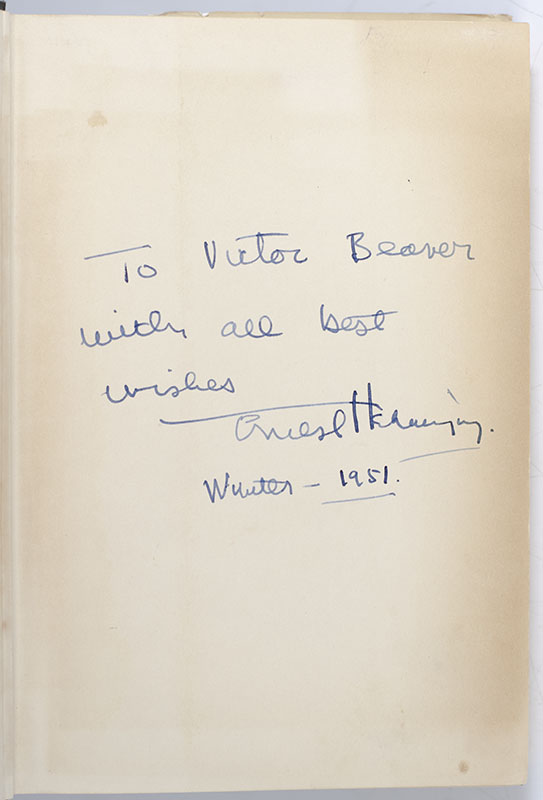 To Victor Beaver
with all best
wishes
Ernest Hemingway.
Winter - 1951.